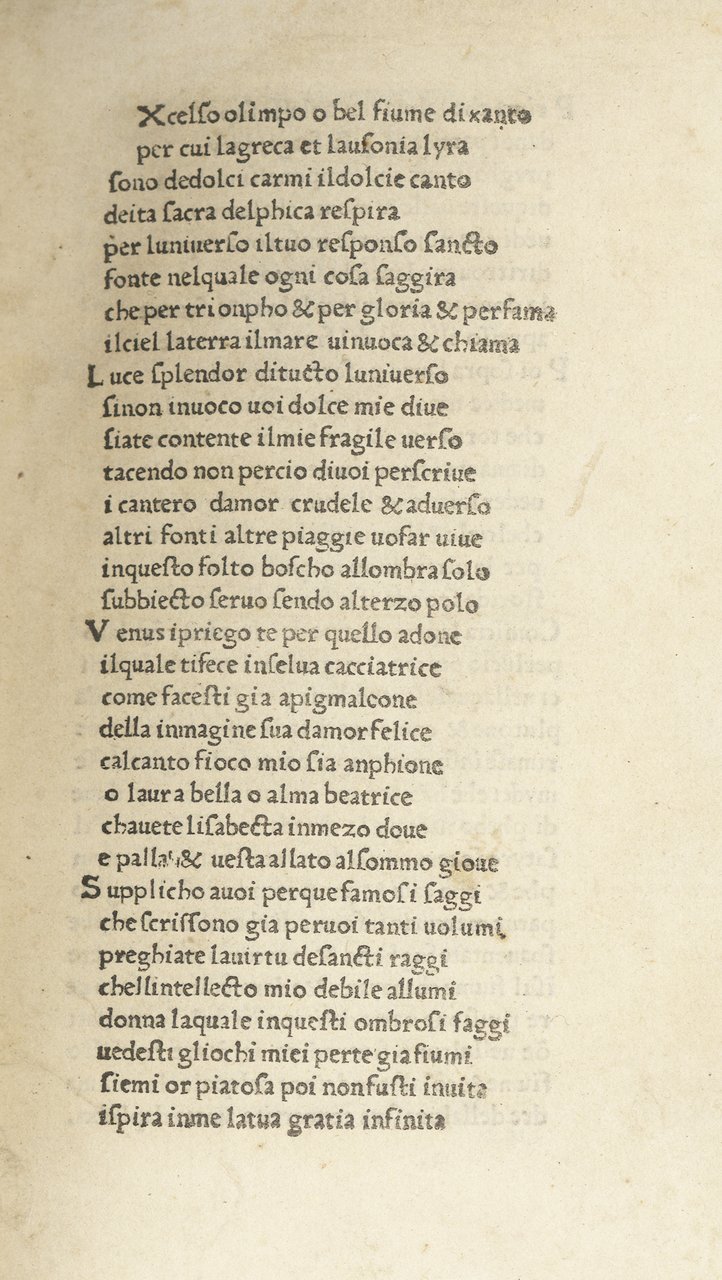 Xcelſo olimpo o bel fiume di xanto
per cui lagreca et lauſonia lyra
ſono dedolci carmi ildolcie canto
deita ſacra delphica reſpira
per luniuerſo iltuo reſponſo ſancto
fonte nelquale ogni coſa ſaggira
che per trionpho & per gloria & perfama
ilciel laterra ilmare uinuoca & chiama
L uce ſplendor ditucto luniuerſo
ſinon inuoco uoi dolce mie diue
ſiate contente ilmie fragile uerſo
tacendo non percio diuoi perſcriue
i cantero damor crudele & aduerſo
altri fonti altre piaggie uofar uiue
inqueſto folto boſcho allombra ſolo
ſubbiecto ſeruo ſendo alterzo polo
V enus ipriego te per quello adone
ilquale tifece inſelua cacciatrice
come faceſti gia apigmaleone
della inmagine ſua damor felice
calcanto fioco mio ſia anphione
o laura bella o alma beatrice
chauete liſabecta inmezo doue
e pallas & ueſta allato alſommo gioue
S upplicho auoi perque famoſi ſaggi
che ſcriſſono gia peruoi tanti uolumi
preghiate lauirtu deſancti raggi
chellintellecto mio debile allumi
donna laquale inqueſti ombroſi faggi
uedeſti gliochi miei perte gia fiumi
ſiemi or piatoſa poi nonfuſti inuita
iſpira inme latua gratia infinita